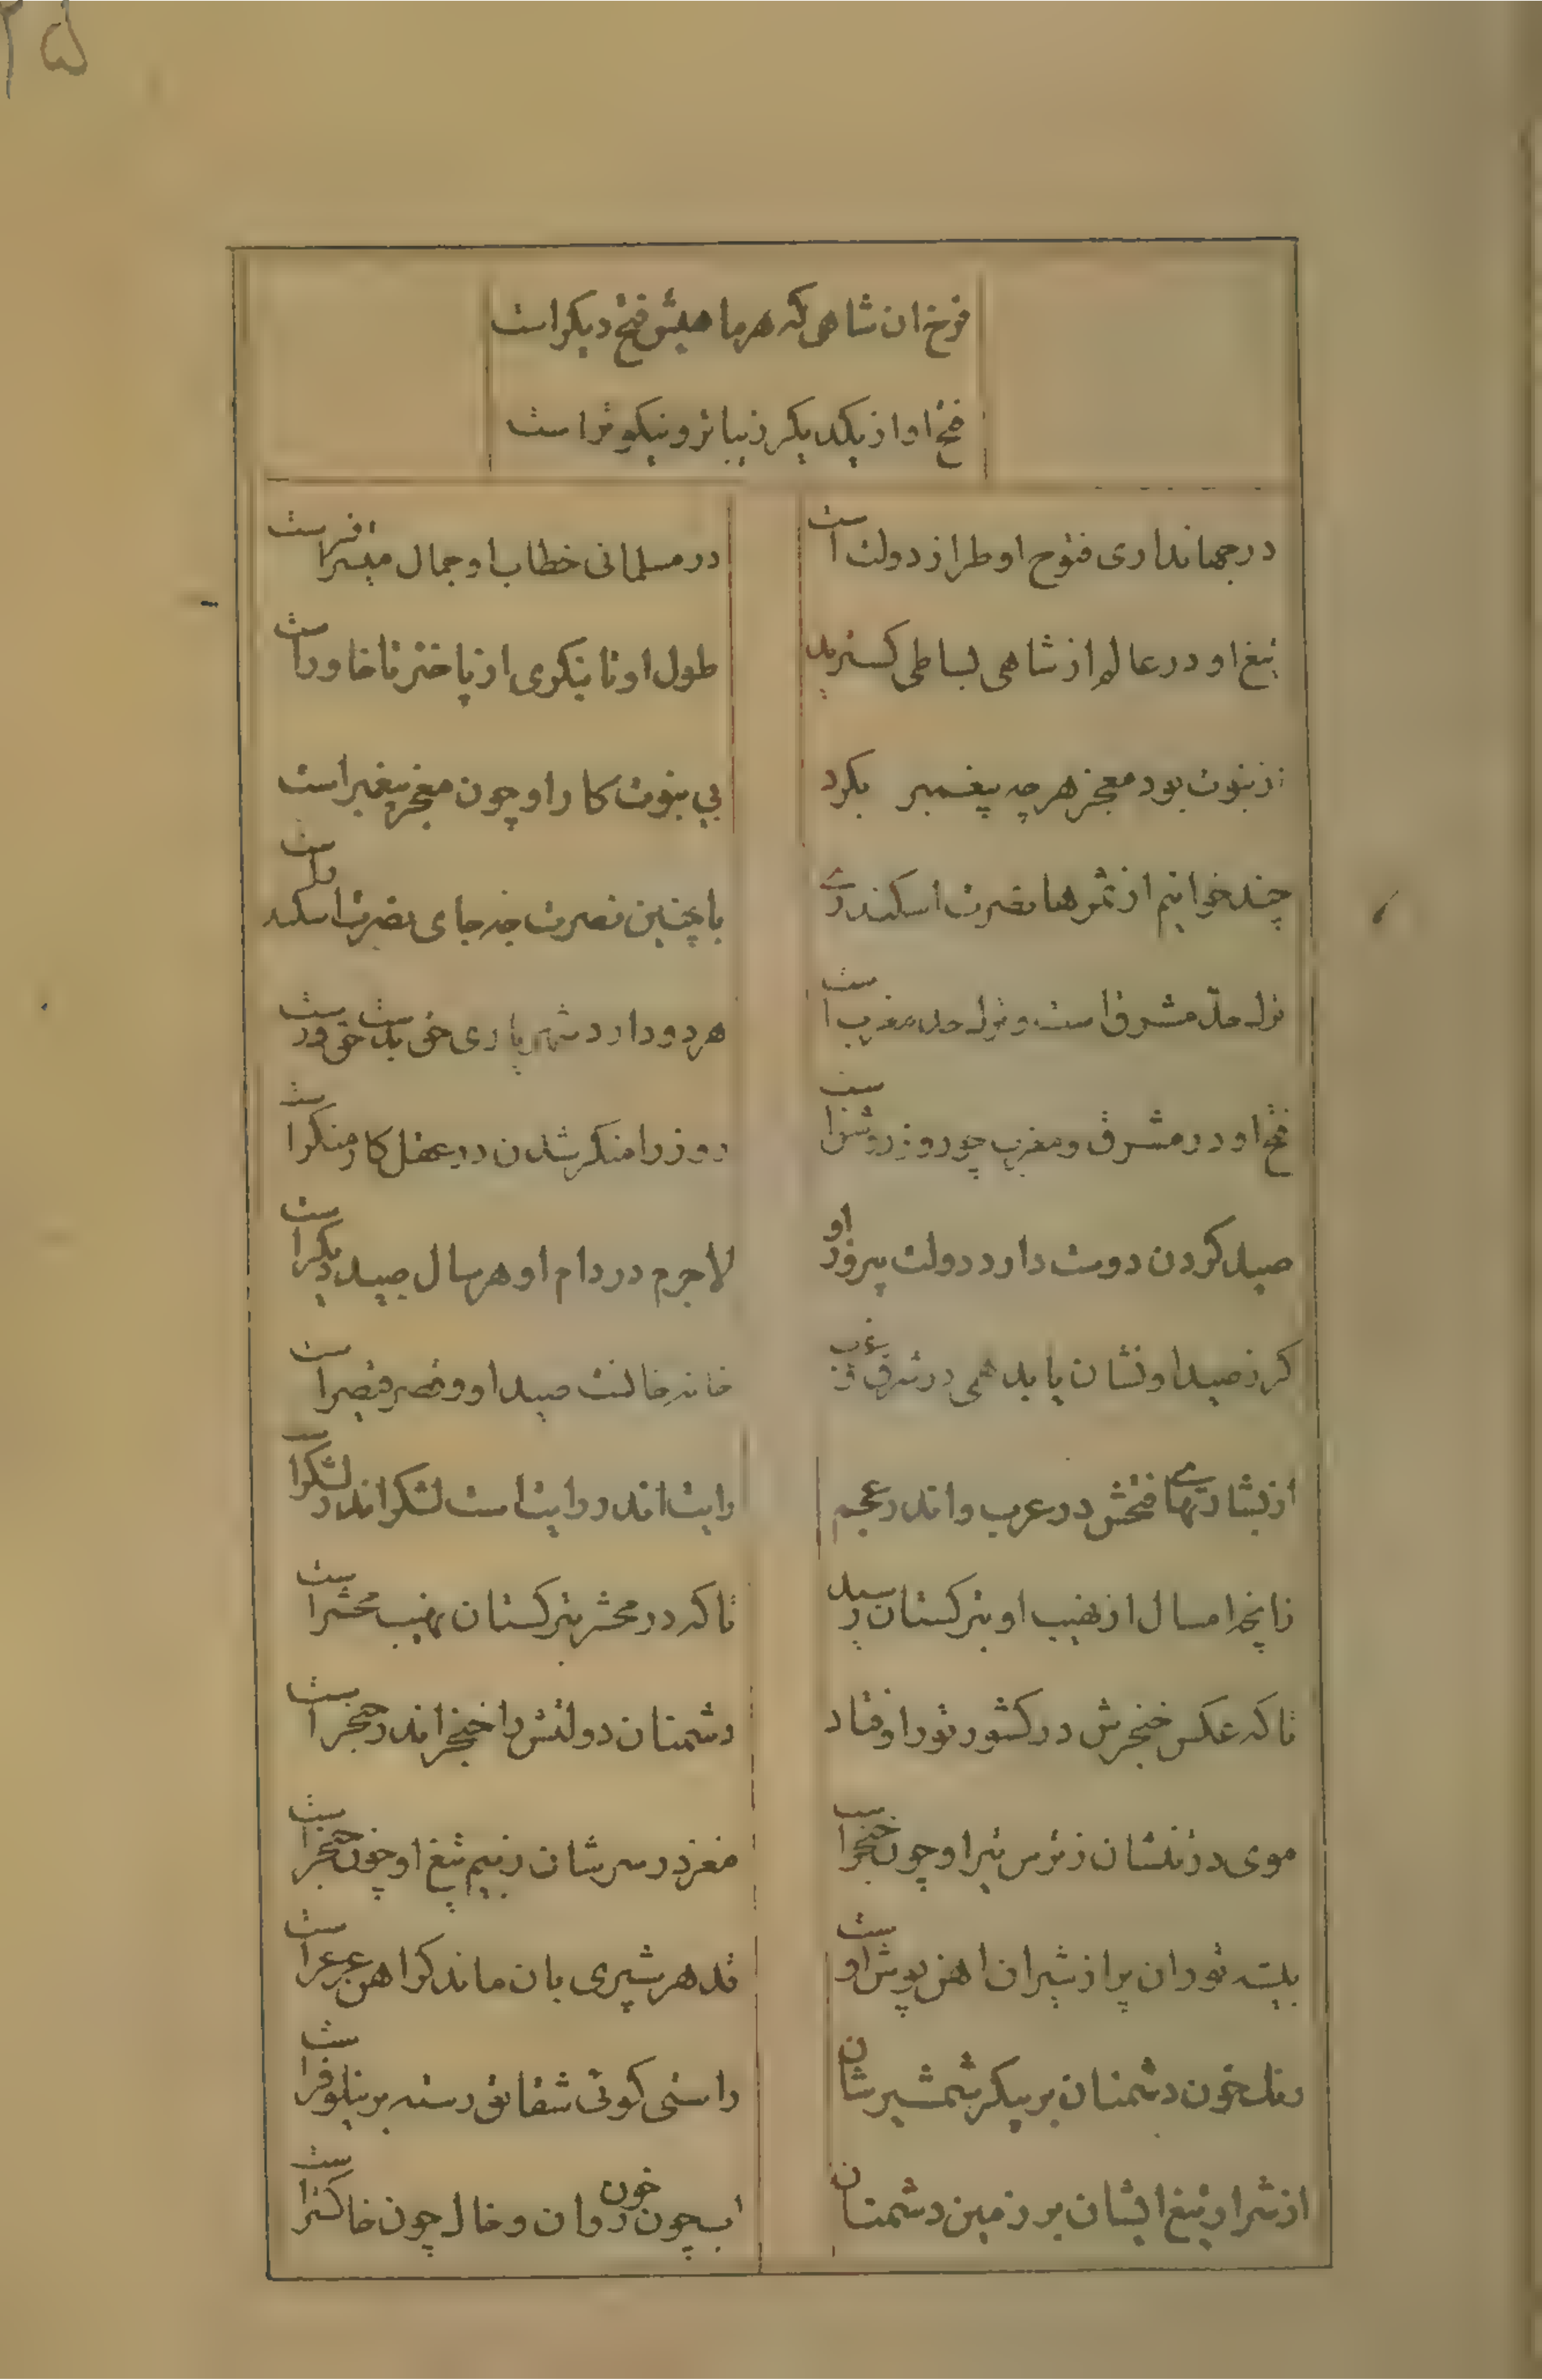 ۲۵
فرخ ان شاهی که هر ماهیش فتح دیکر است
فتح او از یکدیکر زیباتر و نیکوتر است
در جهانداری فتوح او طراز دولت است
در مسلمانی خطاب او جمال منبر است
تیغ او در عالم از شاهی بساطی کسترید
طول او تا بنکری از باختر تا خاور است
از نبوت بود معجز هر چه پیغمبر بکرد
بی نبوت کار او چون معجز پیغمبر است
چند خوانیم از ثمرها نصرت اسکندری
با چنین نصرت چه جای نصرت اسکندر است
ترک حد مشرق است و ترک حد مغرب است
هر دو دارد شهریاری حق بدست حق ور است
فتح او در مشرق و مغرب چو روز روشن است
روز را منکر شدن در عقل کار منکر است
صید کردن دوست دارد دولت پیروز او
لاجرم در دام او هر سال صید دیکر است
کر ز صید او نشان یابد همی در شرق و غرب
خانه خانست صید او و قصر قیصر است
از بشارتهای فتحش در عرب و اندر عجم
رایت اندر رایت است لشکر اندر لشکر است
زانچه امسال از نهیب او بترکستان رسید
تا که در محشر بترکستان نهیب محشر است
تا که عکس خنجرش در کشور تور اوفتاد
دشمنان دولتش را خنجر اندر حنجر است
موی در تنشان ز ترس تیر او چون خنجر است
مغز در سرشان ز بیم تیغ او چون حنجر است
بیشه توران پر از شیران اهن پوش او
قد هر شیری بان ماند کز اهن عرعر است
رنک خون دشمنان بر پیکر شمشیرشان
راستی کوئی شقائق رسته بر نیلوفر است
از شرار تیغ ایشان بر زمین دشمنان
اب چون خون روان و خاک چون خاکستر است